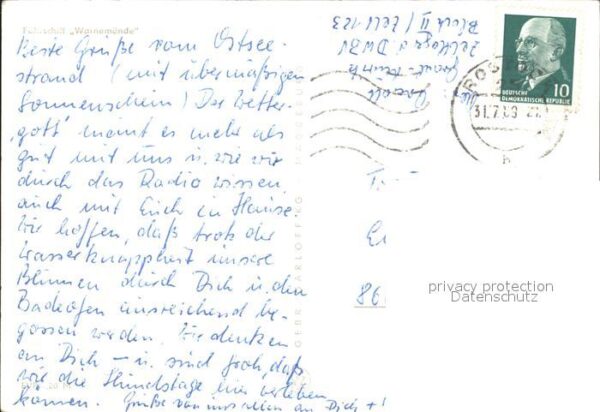 Fährschiff „Warnemünde"
Beste Grüße vom Ostsee-
strand (mit übermäßigem
Sonnenschein) Der Wetter-
gott meint es mehr als
gut mit uns u. wie wir
durch das Radio wissen,
auch mit Euch in Hause.
Wir hoffen, daß trotz der
Wasserknappheit unsere
Blumen durch Dich u. den
Badeofen ausreichend be-
gossen werden. Wir denken
an Dich – u. sind froh, daß
wie die Hundstage hier verleben
können. Grüße von uns allen an Dich
Block II / Zelt 123
DEUTSCHE
DEMOKRATISCHE REPUBLIK
10
ROSTOCK
31.7.69
b
86
privacy protection
Datenschutz